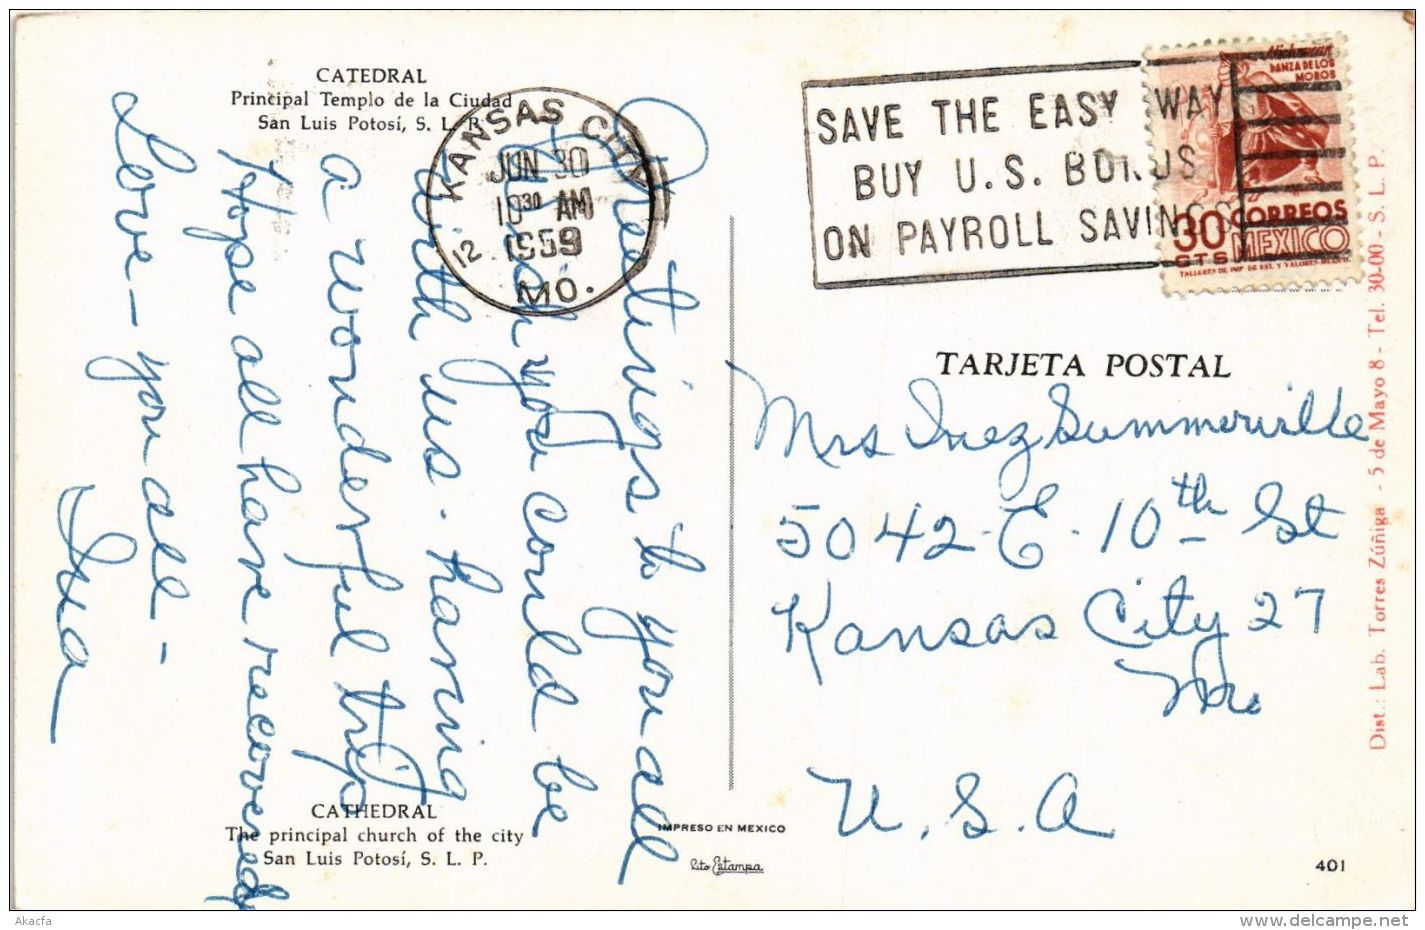 CATEDRAL
Principal Templo de la Ciudad
San Luis Potosí, S. L. P.
KANSAS CITY
JUN 30
10 30 AM
1959
12
MO.
SAVE THE EASY WAY
BUY U.S. BONDS
ON PAYROLL SAVINGS
Michoacan
DANZA DE LOS
MOROS
30 CORREOS
CTS MEXICO
TALLERES DE IMP. DE EST. Y VALORES
Greetings to you all
Wish you could be
with us. having
a wonderful trip
Hope all have recovered
Love - you all -
Iva
TARJETA POSTAL
Mrs Inez Summerville
5042-E-10th St
Kansas City 27
Mo
U.S.A
Dist.: Lab. Torres Zúñiga - 5 de Mayo 8 - Tel. 30-00 - S. L. P.
CATHEDRAL
The principal church of the city
San Luis Potosí, S. L. P.
IMPRESO EN MEXICO
Lito Estampa
401
Akacfa
www.delcampe.net